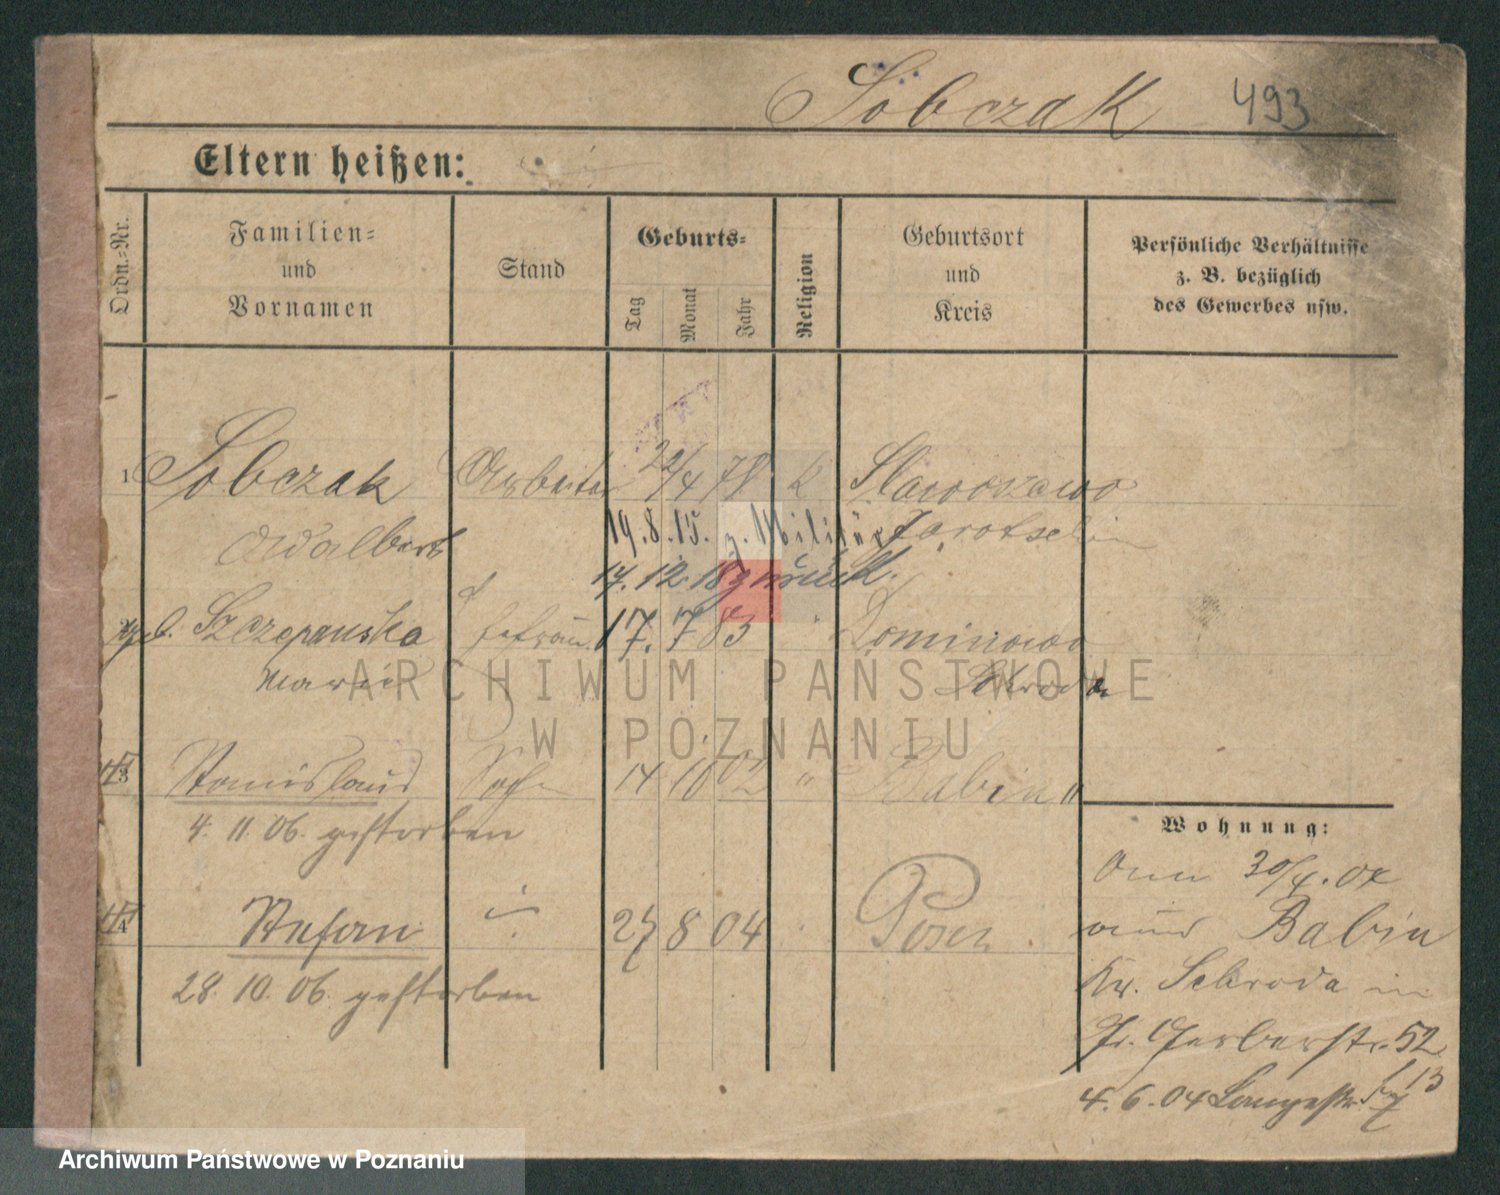 Sobczak 493
Eltern heißen:
Ordn.-Nr.
Familien-
und
Vornamen
Stand
Geburts-
Tag
Monat
Jahr
Religion
Geburtsort
und
Kreis
Persönliche Verhältnisse
z. B. bezüglich
des Gewerbes usw.
1 Sobczak Arbeiter 22/4 78 k Slawoszewo
Adalbert 19.8.15. z. Militär Jarotschin
17.12.18 zurück.
geb. Szczepanska Ehefrau 17. 7 83 " Dominowo
Maria Schroda
3 Stanislaus Sohn 14 10 02 " Babin "
4. 11. 06. gestorben
4 Stefan " 27 8 04 Posen
28. 10. 06. gestorben
Wohnung:
30/4. 04
Babin
Kr. Schroda in
Gr. Gerberstr. 52
4.6.04 Langestr. 7
ARCHIWUM PAŃSTWOWE
W POZNANIU
Archiwum Państwowe w Poznaniu